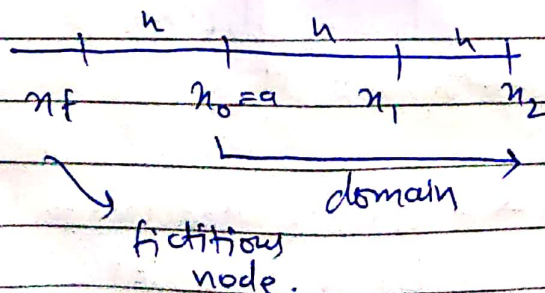 h h h
xf x₀=a x₁ x₂
domain
fictitious
node.